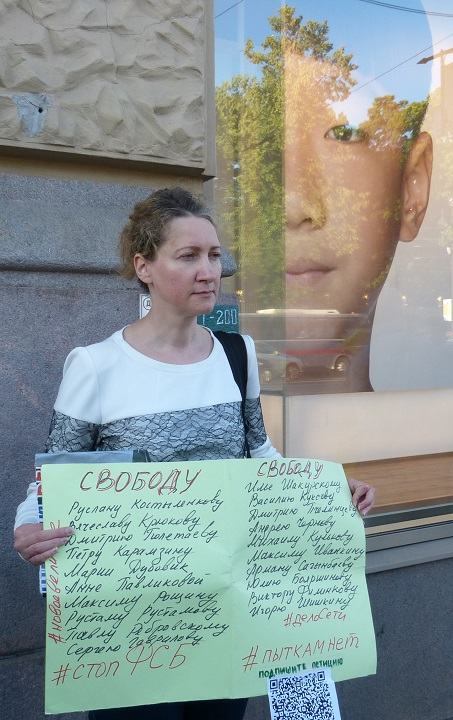 СВОБОДУ
Руслану Костыленкову
Вячеславу Крюкову
Дмитрию Полетаеву
Петру Карамзину
Марии Дубовик
Анне Павликовой
Максиму Рощину
Рустаму Рустамову
Павлу Ребровскому
Сергею Гаврилову
#СТОП ФСБ
СВОБОДУ
Илье Шакурскому
Василию Куксову
Дмитрию Пчелинцеву
Андрею Чернову
Михаилу Кулькову
Максиму Иванкину
Арману Сагынбаеву
Юлию Бояршинову
Виктору Филинкову
Игорю Шишкину
#ДелоСети
#ПЫТКАМНЕТ
ПОДПИШИТЕ ПЕТИЦИЮ
Г-200